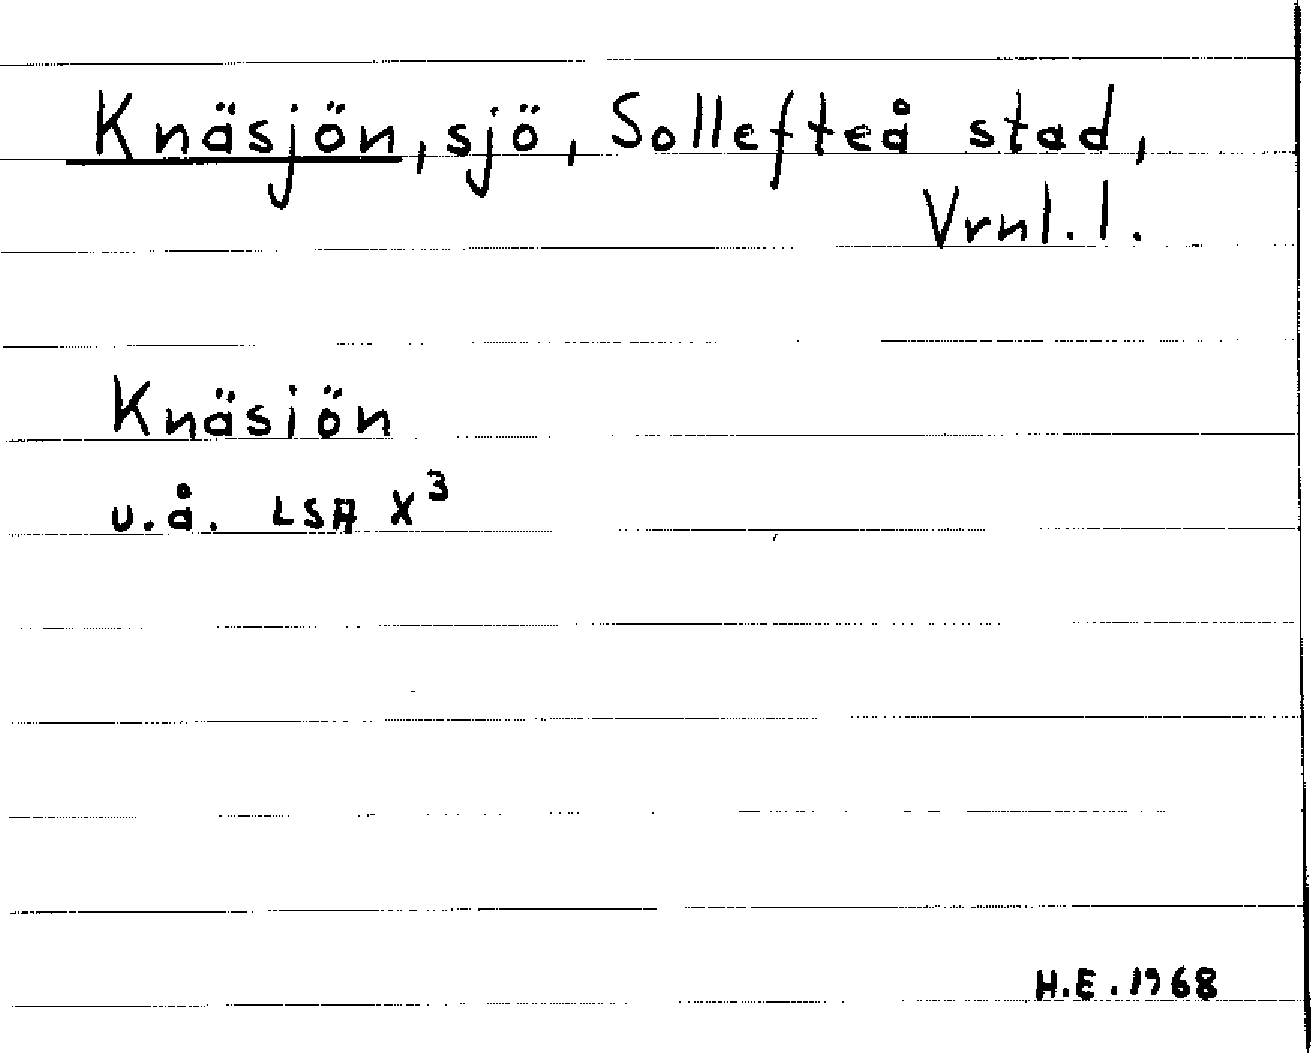 Knäsjön, sjö, Sollefteå stad,
Vrnl. l.
Knäsiön
u.å. LSA X³
H.E. 1968